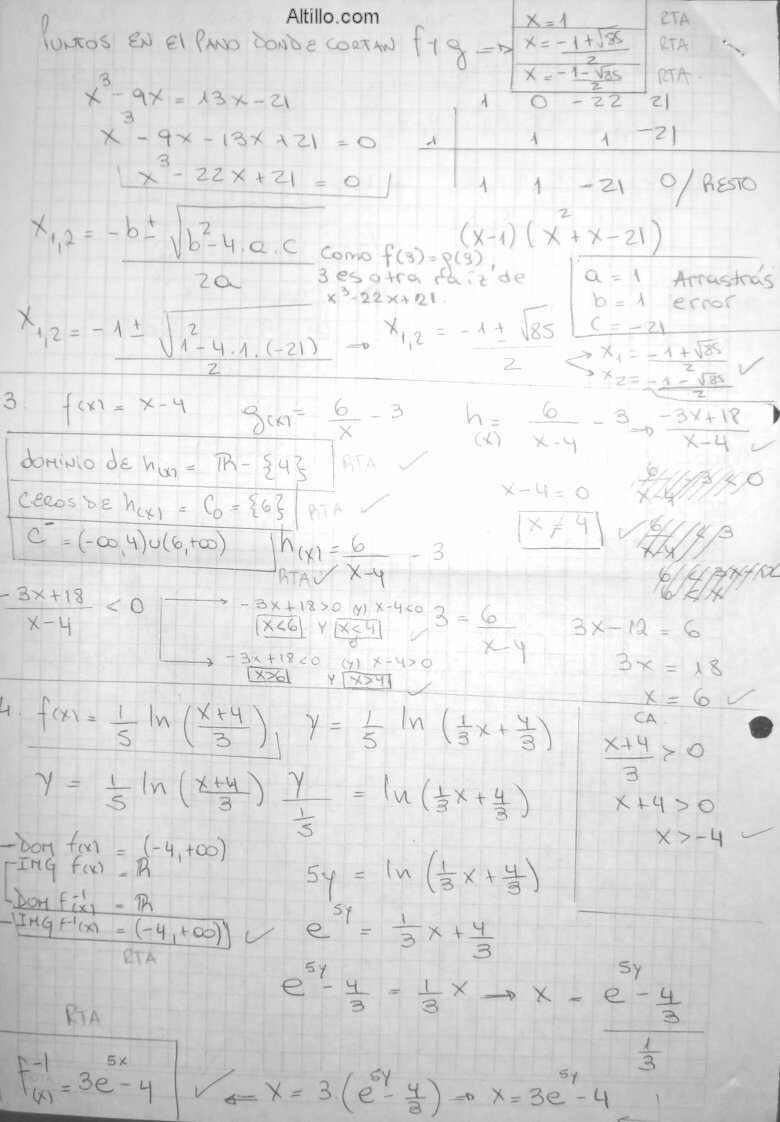 Altillo.com
PUNTOS EN El PANO DONDE CORTAN f y g ⇒
x = 1 RTA
x = (-1+√85)/2 RTA
x = (-1-√85)/2 RTA
x³ - 9x = 13x - 21
x³ - 9x - 13x + 21 = 0
x³ - 22x + 21 = 0
1 0 -22 21
1 1 1 -21
1 1 -21 0/ RESTO
x₁,₂ = -b ± √(b² - 4.a.c) / 2a
(x-1)(x² + x - 21)
Como f(3) = g(3),
3 es otra raiz de
x³ - 22x + 21.
a = 1 Arrastrás
b = 1 error
c = -21
x₁,₂ = -1 ± √(1² - 4.1.(-21)) / 2 → x₁,₂ = (-1 ± √85)/2
x₁ = (-1+√85)/2 ✓
x₂ = (-1-√85)/2
3. f(x) = x-4 g(x) = 6/x - 3 h(x) = 6/(x-4) - 3 → (-3x+18)/(x-4) ✓
DOMINIO DE h(x) = R - {4} RTA ✓
CEROS DE h(x) = C₀ = {6} RTA ✓
C⁻ = (-∞,4)∪(6,+∞)
RTA ✓
x-4 = 0
x ≠ 4 ✓
h(x) = 6/(x-4) - 3
(-3x+18)/(x-4) < 0
-3x+18>0 (y) x-4<0
x<6 y x<4 ✓
o
-3x+18<0 (y) x-4>0
x>6 y x>4 ✓
3 = 6/(x-4)
3x-12 = 6
3x = 18
x = 6 ✓
4. f(x) = 1/5 ln((x+4)/3) y = 1/5 ln(1/3x + 4/3)
CA.
(x+4)/3 > 0
x+4 > 0
x > -4 ✓
y = 1/5 ln((x+4)/3) y/(1/5) = ln(1/3x + 4/3)
DOM f(x) = (-4,+∞)
IMG f(x) = R
DOM f⁻¹(x) = R
IMG f⁻¹(x) = (-4,+∞) ✓
RTA
5y = ln(1/3x + 4/3)
e^5y = 1/3x + 4/3
e^5y - 4/3 = 1/3x → x = (e^5y - 4/3)/(1/3)
RTA
f⁻¹(x) = 3e^5x - 4 ✓ ← x = 3.(e^5y - 4/3) → x = 3e^5y - 4